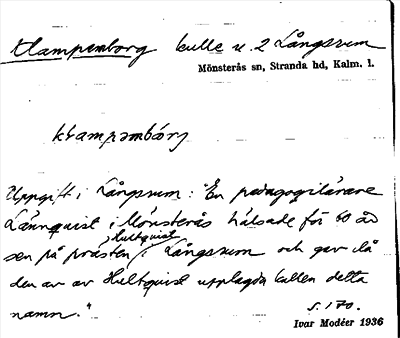 Klampenborg kulle v. 2 Långsrum
Mönsterås sn, Stranda hd, Kalm. l.
klampəmbårj
Uppgift i Långsrum: "En pedagogilärare
Lännquist i Mönsterås hälsade för 60 år
sen på prosten Hultquist i Långsrum och gav då
den av av Hultquist upplagda kullen detta
namn."
s. 170.
Ivar Modéer 1936